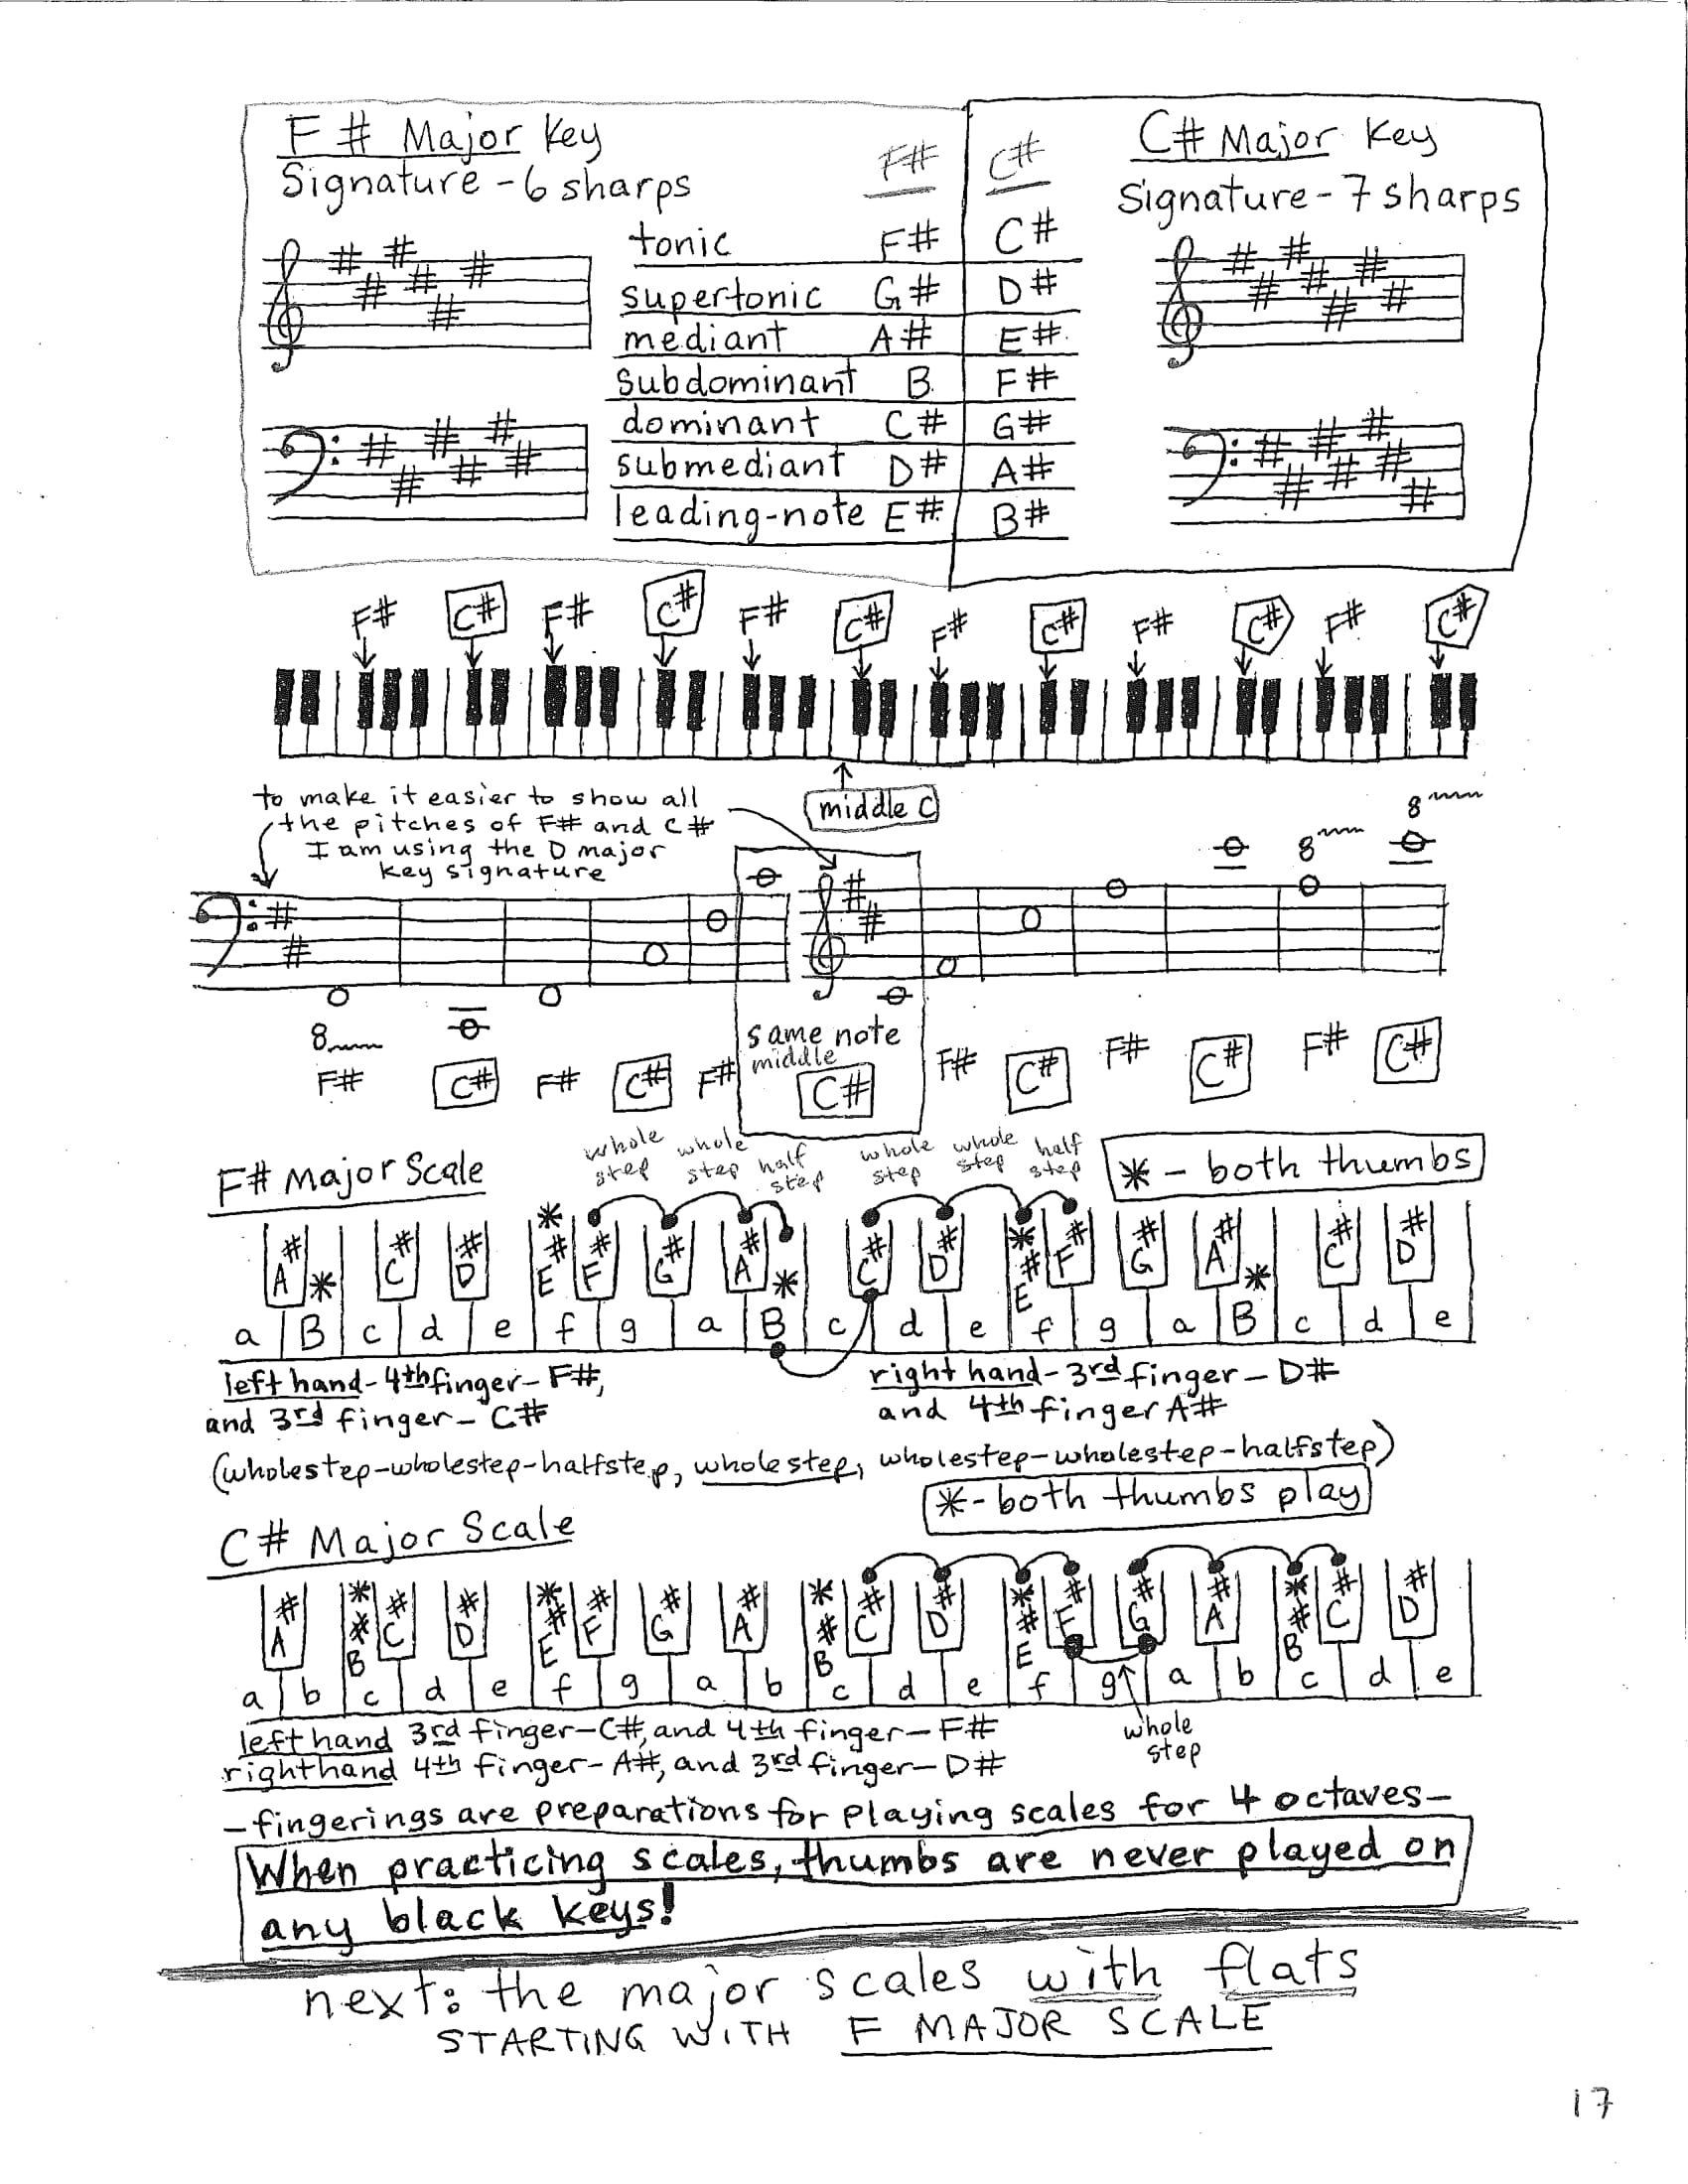 F# Major Key
Signature - 6 sharps
F# C#
C# Major Key
Signature - 7 sharps
tonic F# C#
supertonic G# D#
mediant A# E#
subdominant B F#
dominant C# G#
submediant D# A#
leading-note E# B#
F# C# F# C# F# C# F# C# F# C# F# C#
middle C
to make it easier to show all
the pitches of F# and C#
I am using the D major
key signature
8 8
8
same note
middle
F# C# F# C# F# C# F# C# F# C# F# C#
F# Major Scale
whole step whole step half step whole step whole step half step
* - both thumbs
A# * C# D# * E# F# G# A# * C# D# * E# F# G# A# * C# D#
a B c d e f g a B c d e f g a B c d e
left hand - 4th finger - F#,
and 3rd finger - C#
right hand - 3rd finger - D#
and 4th finger A#
(wholestep-wholestep-halfstep, wholestep, wholestep-wholestep-halfstep)
* - both thumbs play
C# Major Scale
A# * B# C# D# * E# F# G# A# * B# C# D# * E# F# G# A# * B# C# D#
a b c d e f g a b c d e f g a b c d e
whole
step
left hand 3rd finger - C#, and 4th finger - F#
right hand 4th finger - A#, and 3rd finger - D#
- fingerings are preparations for playing scales for 4 octaves -
When practicing scales, thumbs are never played on
any black keys!
next: the major scales with flats
STARTING WITH F MAJOR SCALE
17